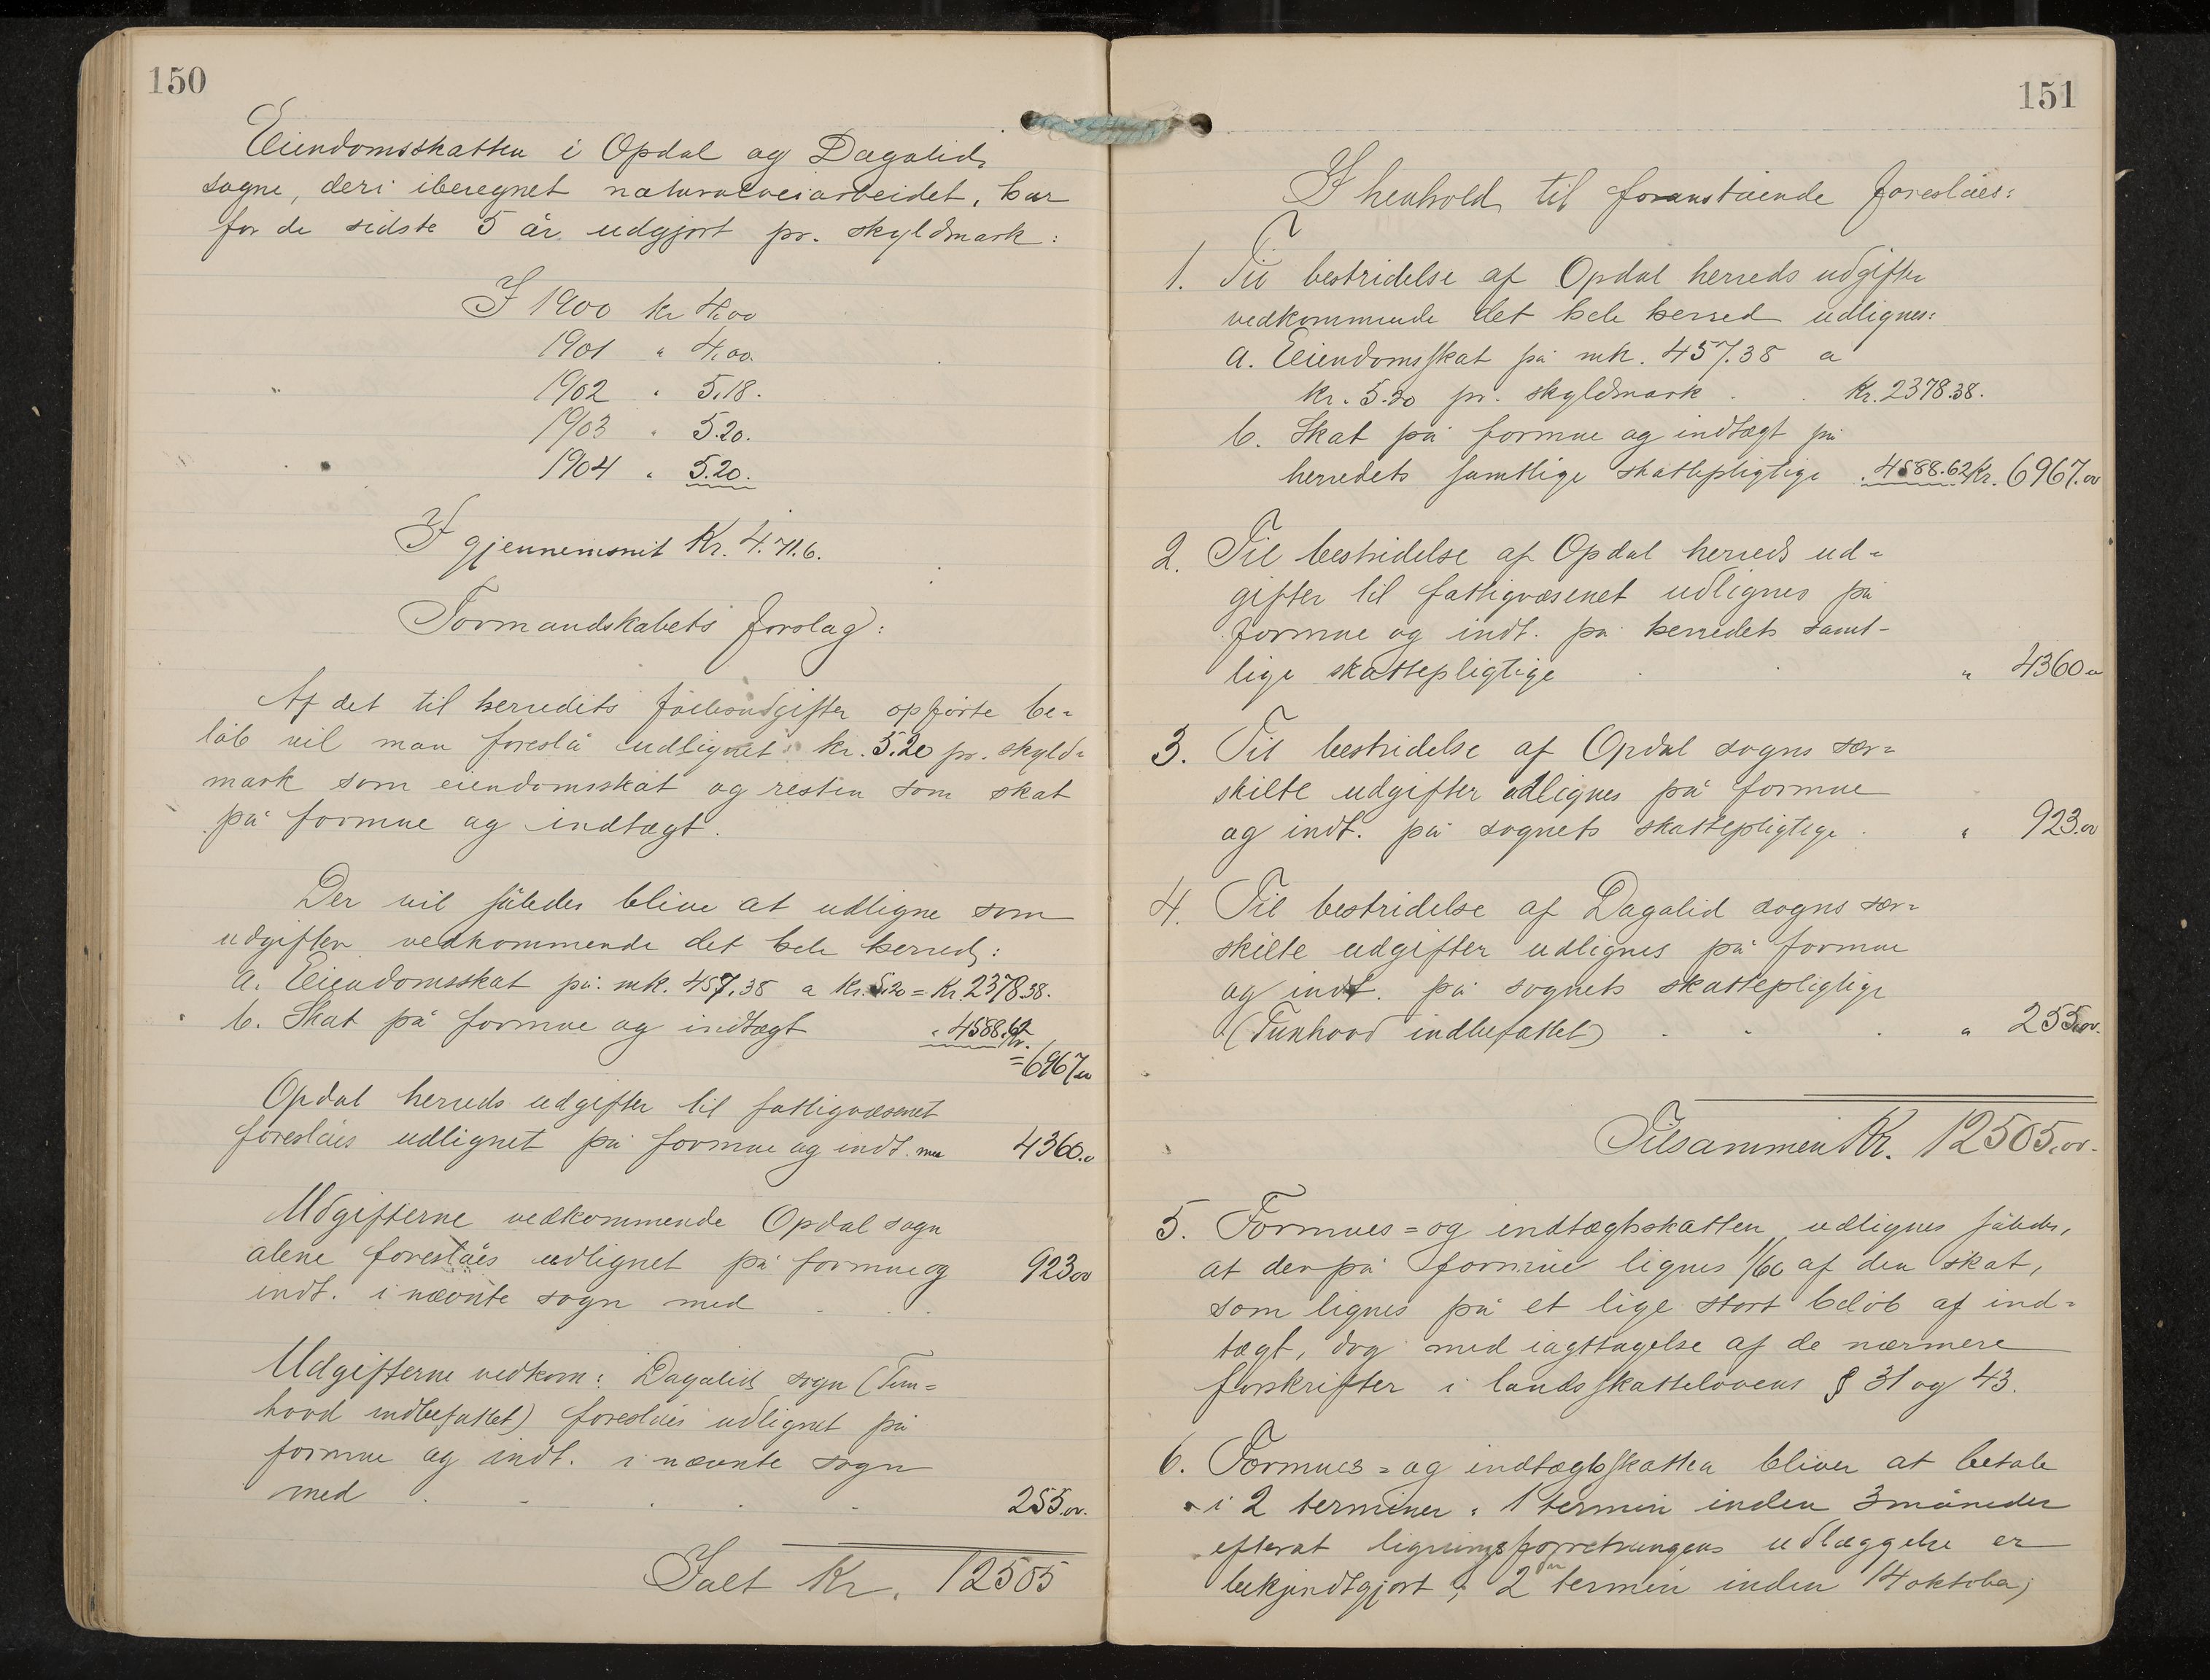 150
Eiendomsskatten i Opdal og Dagalids
sogne, deri iberegnet naturalveiarbeidet, har
for de sidste 5 år udgjort pr. skyldmark:
I 1900 kr 4,00
1901 " 4,00
1902 " 5,18.
1903 " 5.20.
1904 " 5.20.
I gjennemsnit Kr. 4.71.6.
Formandskabets forslag:
Af det til herredets fællesudgifter opførte be=
løb vil man foreslå udlignet kr. 5.20 pr. skyld=
mark som eiendomsskat og resten som skat
på formue og indtægt.
Der vil således blive at udligne som
udgifter vedkommende det hele herred:
a. Eiendomsskat på mk. 457.38 a kr. 5.20 = Kr. 2378.38.
b. Skat på formue og indtægt " 4588.62 Kr.
= 6967.00
Opdal herreds udgifter til fattigvæsenet
foreslåes udlignet på formue og indt. med 4360.00
Udgifterne vedkommende Opdal sogn
alene foreslåes udlignet på formue og 923.00
indt. i nævnte sogn med . . .
Udgifterne vedkom: Dagalids sogn (Tun=
hovd indbefattet) foreslåes udlignet på
formue og indt. i nævnte sogn
med . . . . . 255.00.
Ialt Kr. 12505
151
I henhold til foranstående foreslåes:
1. Til bestridelse af Opdal herreds udgifter
vedkommende det hele herred udlignes:
a. Eiendomsskat på mk. 457.38 a
kr. 5.20 pr. skyldmark . . Kr. 2378.38.
b. Skat på formue og indtægt på
herredets samtlige skattepligtige " 4588.62 Kr. 6967.00
2. Til bestridelse af Opdal herreds ud=
gifter til fattigvæsenet udlignes på
formue og indt. på herredets samt-
lige skattepligtige . . " 4360.00
3. Til bestridelse af Opdal sogns sær=
skilte udgifter udlignes på formue
og indt. på sognets skattepligtige . " 923.00
4. Til bestridelse af Dagalid sogns sær=
skilte udgifter udlignes på formue
og indt. på sognets skattepligtige
(Tunhovd indbefattet) . . . " 255.00.
Tilsammen Kr. 12505.00.
5. Formues= og indtægtsskatten udlignes således,
at der på formue lignes 1/60 af den skat,
som lignes på et lige stort beløb af ind=
tægt, dog med iagttagelse af de nærmere
forskrifter i landsskattelovens § 31 og 43.
6. Formues= og indtægtsskatten bliver at betale
i 2 terminer: 1 termin inden 3 måneder
efterat ligningsforretningens udlæggelse er
bekjendtgjort; 2den termin inden 14 oktober;